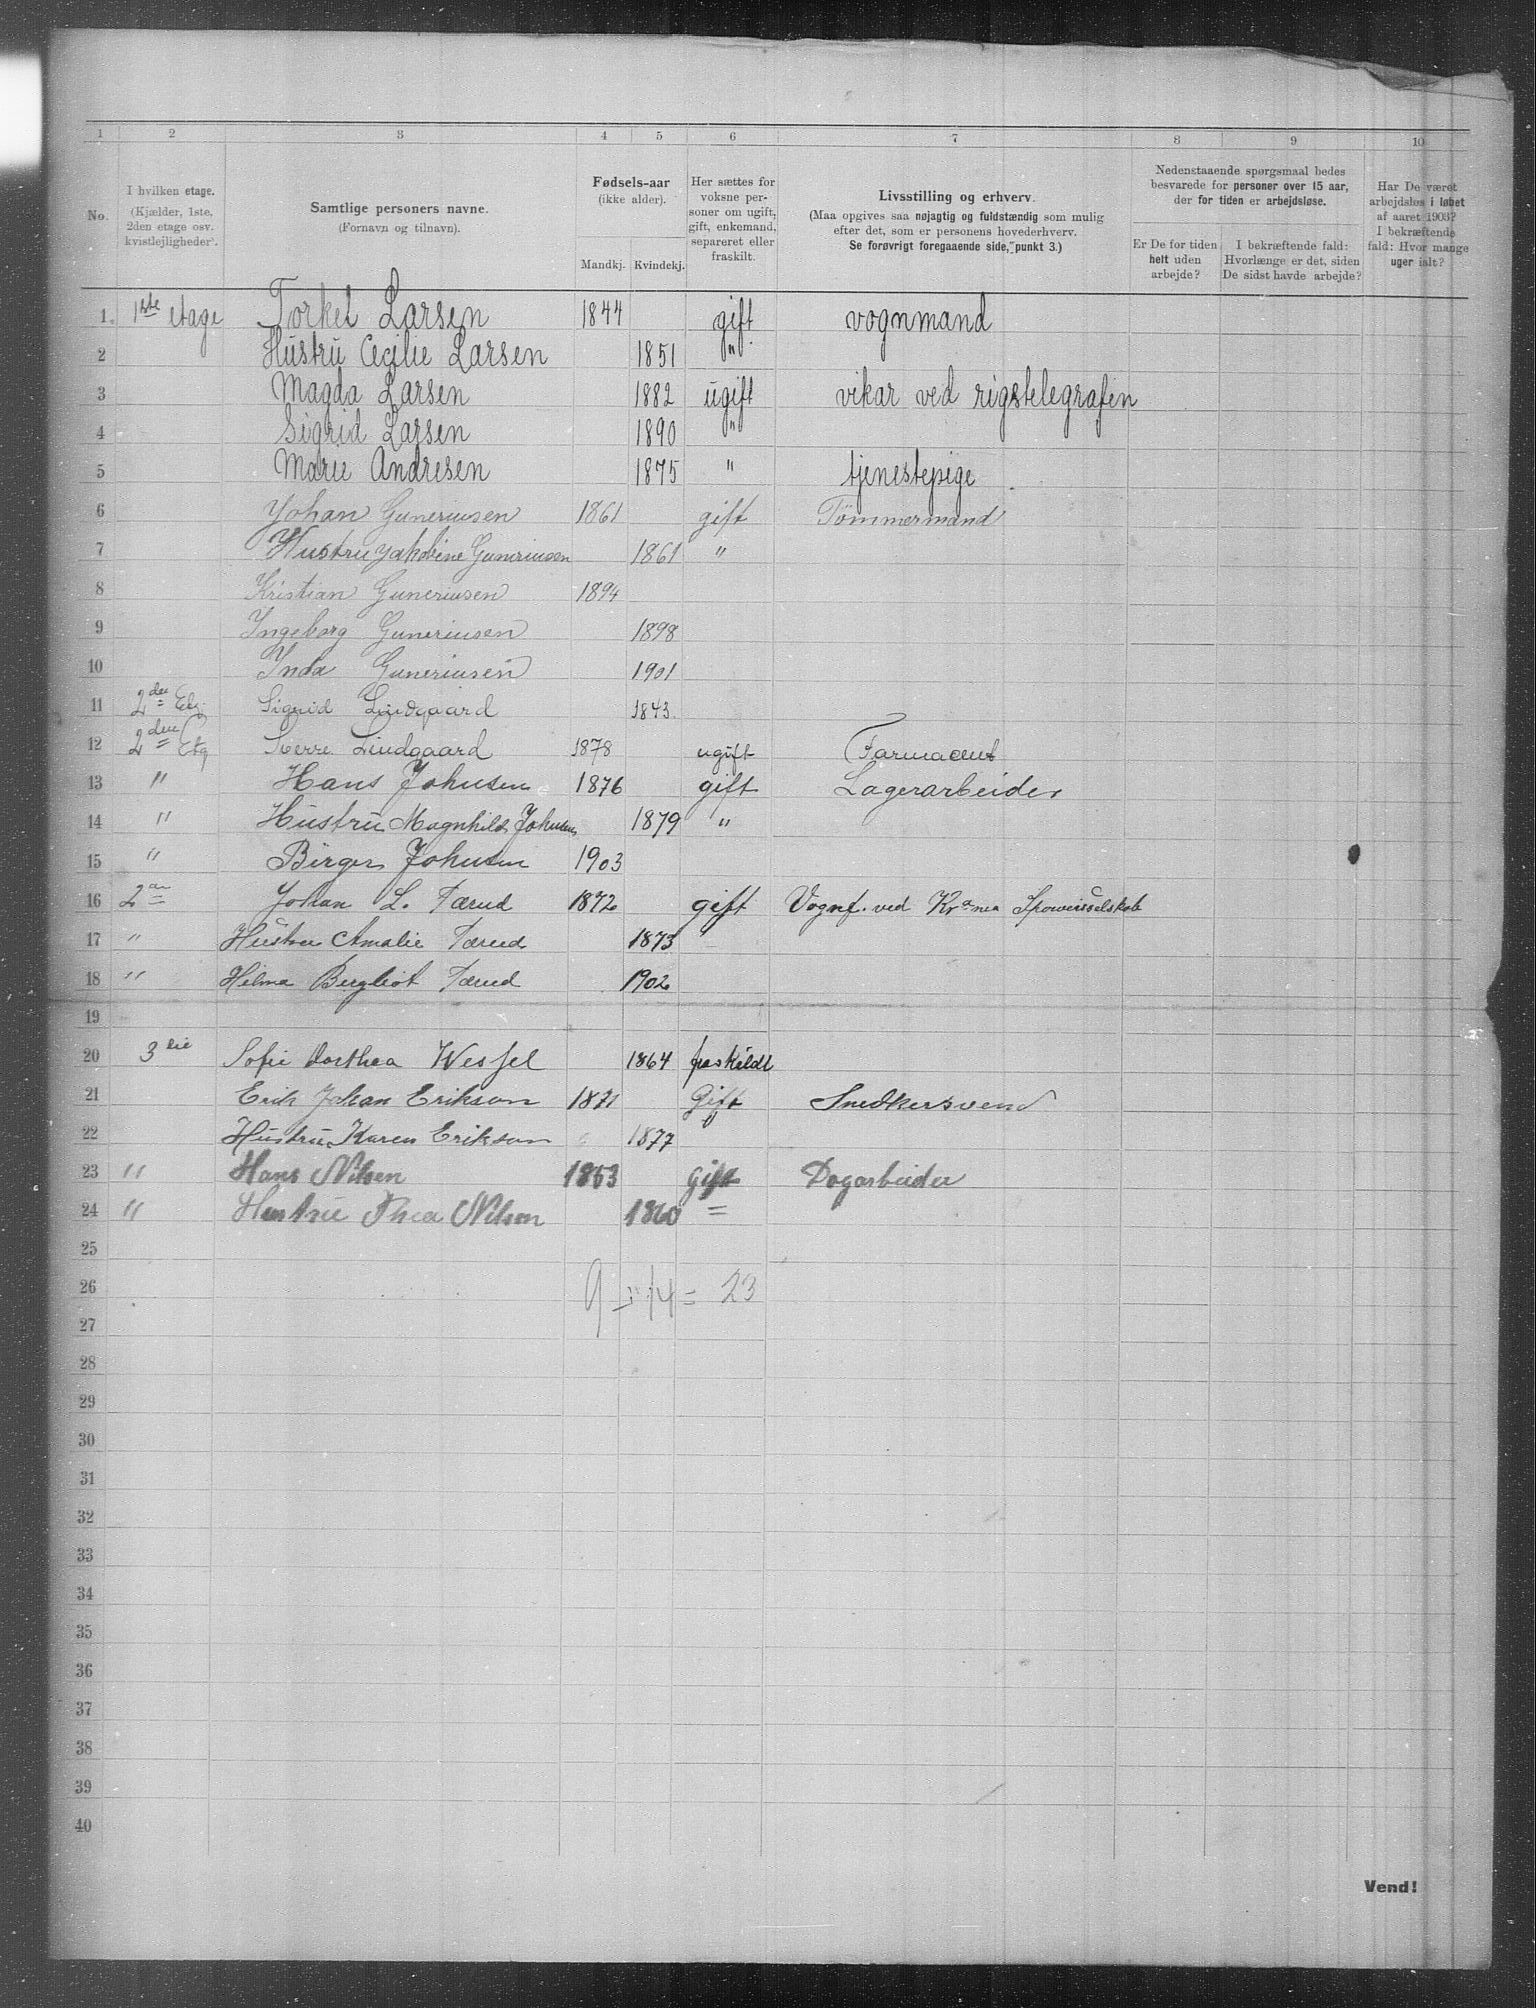 1 2 3 4 5 6 7 8 9 10
No. I hvilken etage. (Kjælder, 1ste, 2den etage osv. kvistlejligheder). Samtlige personers navne. (Fornavn og tilnavn). Fødsels-aar (ikke alder). Mandkj. Kvindekj. Her sættes for voksne personer om ugift, gift, enkemand, separeret eller fraskilt. Livsstilling og erhverv. (Maa opgives saa nøjagtig og fuldstændig som mulig efter det, som er personens hovederhverv. Se forøvrigt foregaaende side, punkt 3.) Nedenstaaende spørgsmaal bedes besvarede for personer over 15 aar, der for tiden er arbejdsløse. Er De for tiden helt uden arbejde? I bekræftende fald: Hvorlænge er det, siden De sidst havde arbejde? Har De været arbejdsløs i løbet af aaret 1903? I bekræftende fald: Hvor mange uger ialt?
1. 1ste etage Torkel Larsen 1844 gift vognmand
2 Hustru Cecilie Larsen 1851 "
3 Magda Larsen 1882 ugift vikar ved rigstelegrafen
4 Sigrid Larsen 1890 "
5 Marie Andresen 1875 " tjenestepige
6 Johan Guneriusen 1861 gift Tömmermand
7 Hustru Jakobine Guneriusen 1861 "
8 Kristian Guneriusen 1894
9 Ingeborg Guneriusen 1898
10 Inda Guneriusen 1901
11 2den Etg. Sigrid Lindgaard 1843
12 2den Etg Sverre Lindgaard 1878 ugift Farmaceut
13 " Hans Johnsen 1876 gift Lagerarbeider
14 " Hustru Magnhild Johnsen 1879 "
15 " Birger Johnsen 1903
16 2den Johan L. Tærud 1872 gift Vognf. ved Kr.ania Sporveisselskab
17 " Hustru Amalie Tærud 1873
18 " Hilma Bergliot Tærud 1902
19
20 3die Sofie Dorthea Wessel 1864 fraskildt
21 Erik Johan Erikson 1871 Gift Snedkersvend
22 Hustru Karen Erikson 1877 "
23 " Hans Nilsen 1853 gift Dagarbeider
24 " Hustru Thea Nilsen 1860 "
25
26 9 + 14 = 23
27
28
29
30
31
32
33
34
35
36
37
38
39
40
Vend!